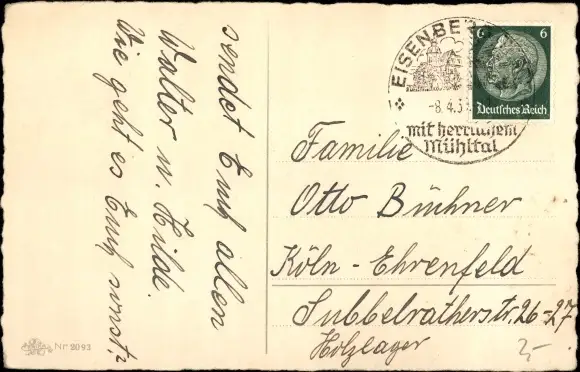 sendet Euch allen
Walter u. Hilde.
Wie geht es Euch sonst?
EISENBERG
-8.4.3
mit herrlichem
Mühltal
6 6
Deutsches Reich
Familie
Otto Büchner
Köln - Ehrenfeld
Subbelratherstr. 26-27
Holzlager
Nr 2093